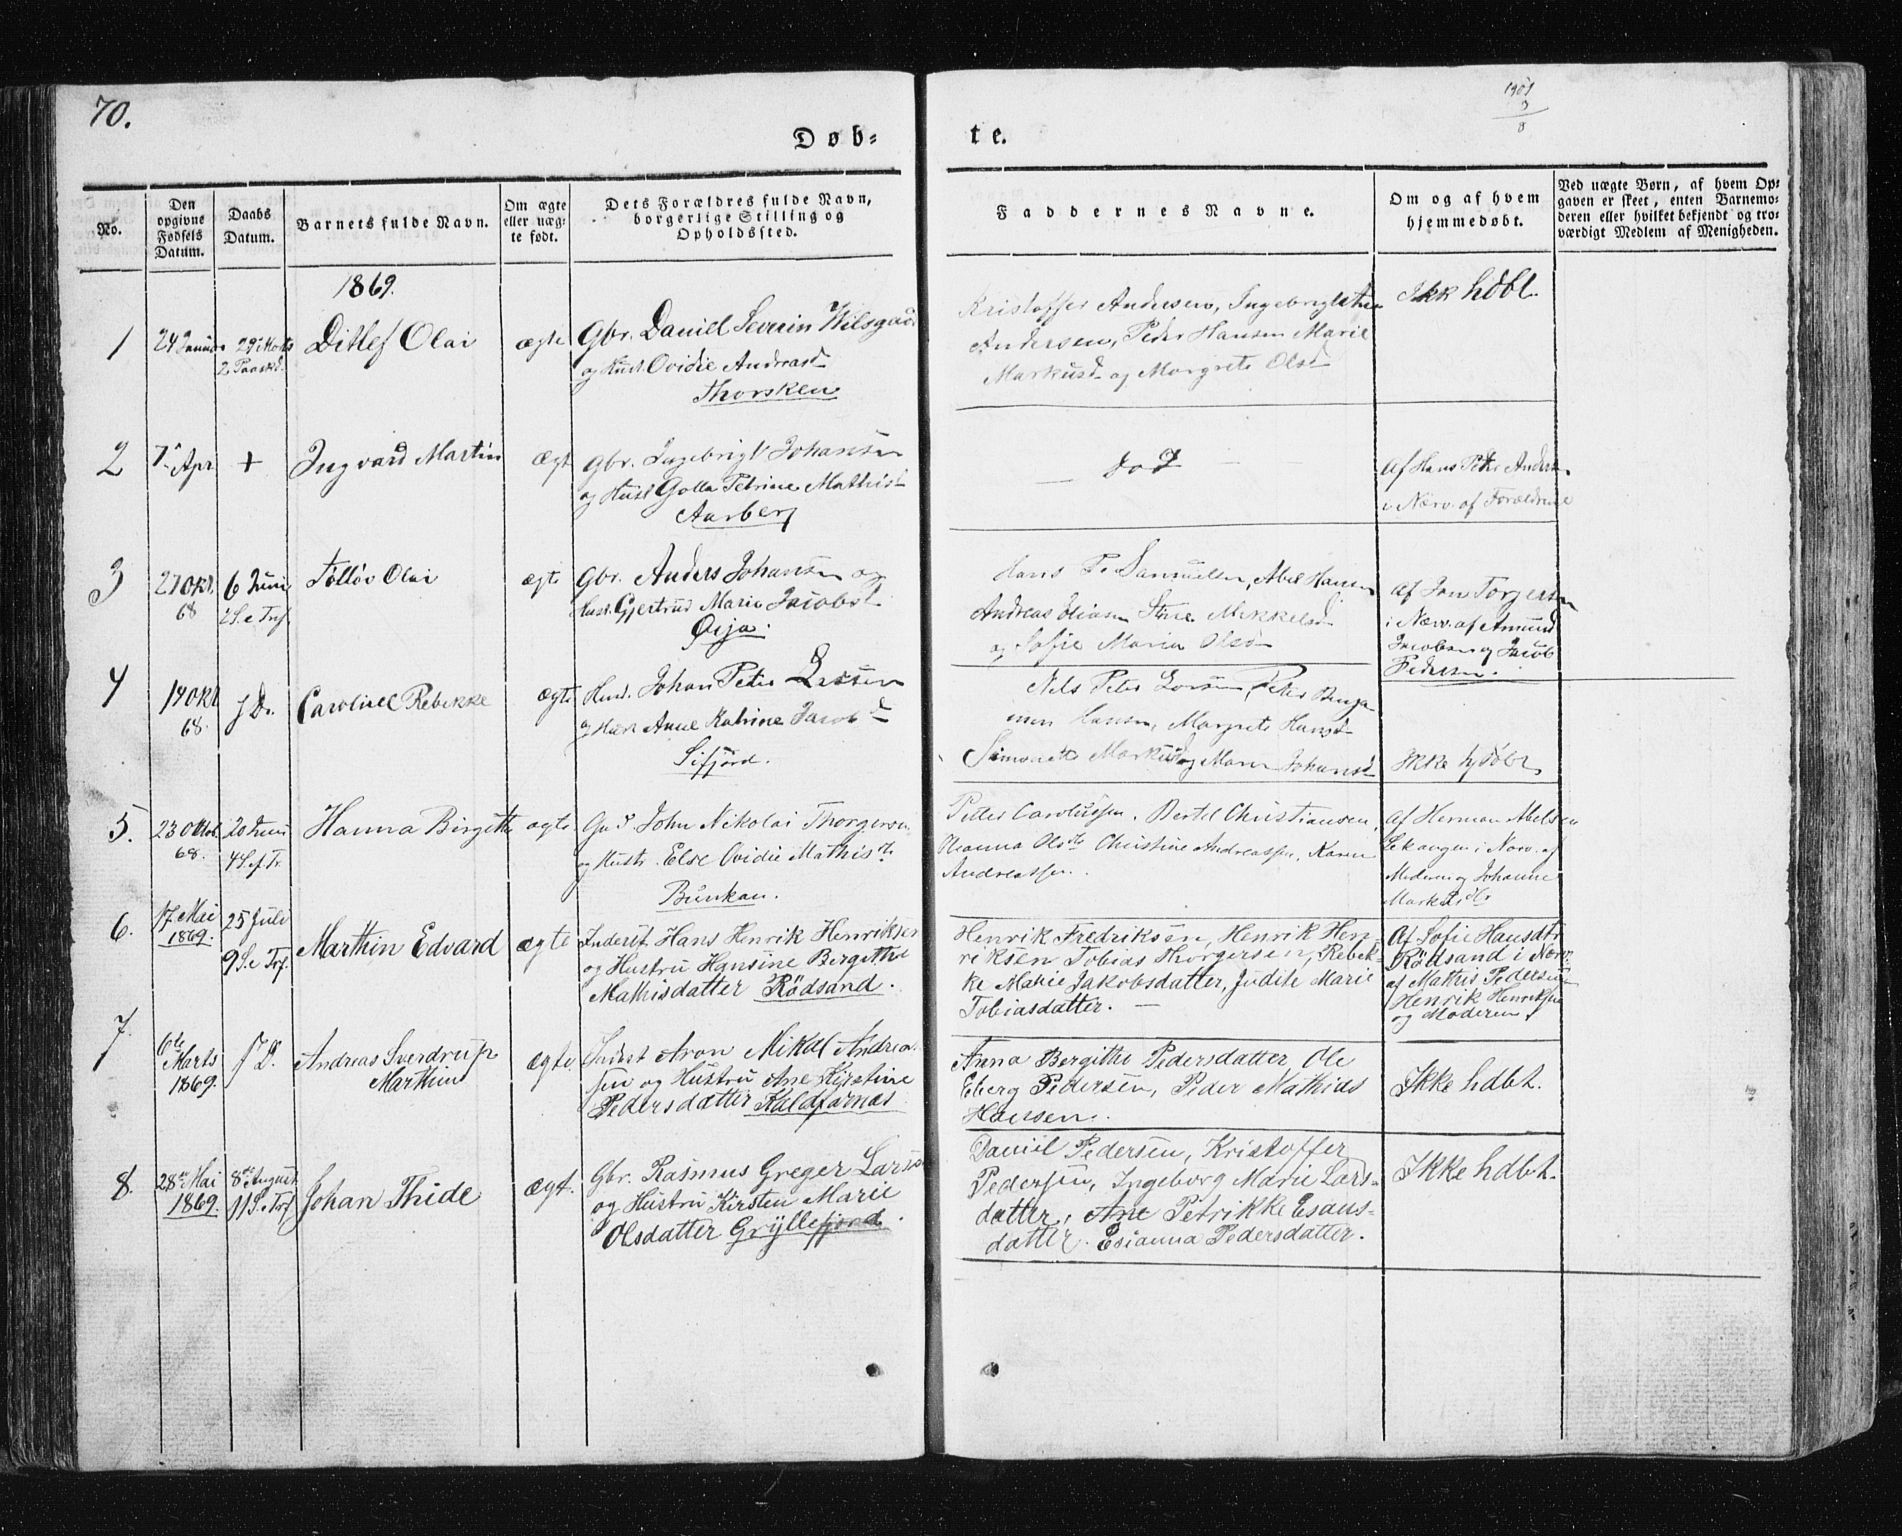 70.
Døb-
te.
No.
Den opgivne Fødsels Datum.
Daabs Datum.
Barnets fulde Navn.
Om ægte eller uægte født.
Dets Forældres fulde Navn, borgerlige Stilling og Opholdssted.
Faddernes Navne.
Om og af hvem hjemmedøbt.
Ved uægte Børn, af hvem Opgaven er skeet, enten Barnemoderen eller hvilket bekjendt og troværdigt Medlem af Menigheden.
1869.
1
24 Januar
29 Marts
2 Paaskd.
Ditlef Olai
ægte
Gbr. Daniel Severin Wilsgaard
og Hust. Ovidie Andreasd
Thorsken
Kristoffer Andersen, Ingebrigt
Andersen, Peder Hansen Marie
Markusd og Margrete Olsd
Ikk hdbt.
2
7 Apr
+
Ingvard Martin
Ægt
Gbr. Ingebrigt Johansen
og Hust Golla Petrine Mathisd
Aarberg
— død —
Af Hans Peter Anders
i Nærv. af Forældrene
3
27 Okt.
68
6 Juni
2 S. e Trf.
Olai
ægte
Gbr. Anders Johansen og
Hust. Gjertrud Marie Jacobsd
Øija.
Hans P. Samuelsen, Abel Hansen
Andreas Stine Mikkelsd
og Sofie Maria Olsd
Af Jon Torgersen
i Nærv. af Amund
Jacobsen og Jacob
Pedersen.
4
19 Okt
68.
f D.
Caroline Rebekke
ægte
Johan Peter
og Hust Anne Katrine Jacobsd
Sifjord.
Nels Peter Peter Benja
min Hansen, Margrete Hansd
Simonette Markusd og Maren Johansd
Ikke hjdøbt
5.
23 Oktob.
68.
20 Juni
4 S. e Tr.
Hanna Birgitte
ægte
John Nikolai Thorgersen
og Hustr. Else Ovidie Mathisdtr
Bunkan.
Petter Carolussen. Bertel Christiansen,
Olsdtr Christine Andreassen. Karen
Andreassen.
Af Herman Abelsen
i Nærv. af
Moderen og Johanne
6.
17. Mai
1869.
25 Juli
9 S. e Trf.
Marthin Edvard
Ægte
Inderst Hans Henrik Henriksen
og Hustru Hansine Bergithe
Mathisdatter Rödsand.
Henrik Fredriksen, Henrik Hen-
riksen Tobias Thorgersen, Rebek-
ke Marie Jakobsdatter, Judith Marie
Tobiasdatter. —
Af Sofie Hansdtr
Rödsand i Nærv.
af Mathis Pedersen
Henrik Henriksen
og Moderen
7.
6te
Marts
1869.
f D.
Andreas Sverdrup
Marthin
ægte
Inderst Aron Mikal Andrea-
sen og Hustru Ane Kirstine
Pedersdatter Kaldfarnæs
Anna Bergithe Pedersdatter Ole
Eberg Pedersen, Peder Mathias
Hansen.
Ikke hdbt.
8.
28de Mai
1869.
8de August
11 S. e Trf
Johan Thide
ægt.
Gbr. Rasmus Greger Larsen
og Hustru Kirsten Marie
Olsdatter Gryllefjord.
Daniel Pedersen, Kristoffer
Pedersen, Ingeborg Marie Lars-
datter, Ane Petrikke Esaus-
datter. Esianna Pedersdatter.
Ikke hdbt.